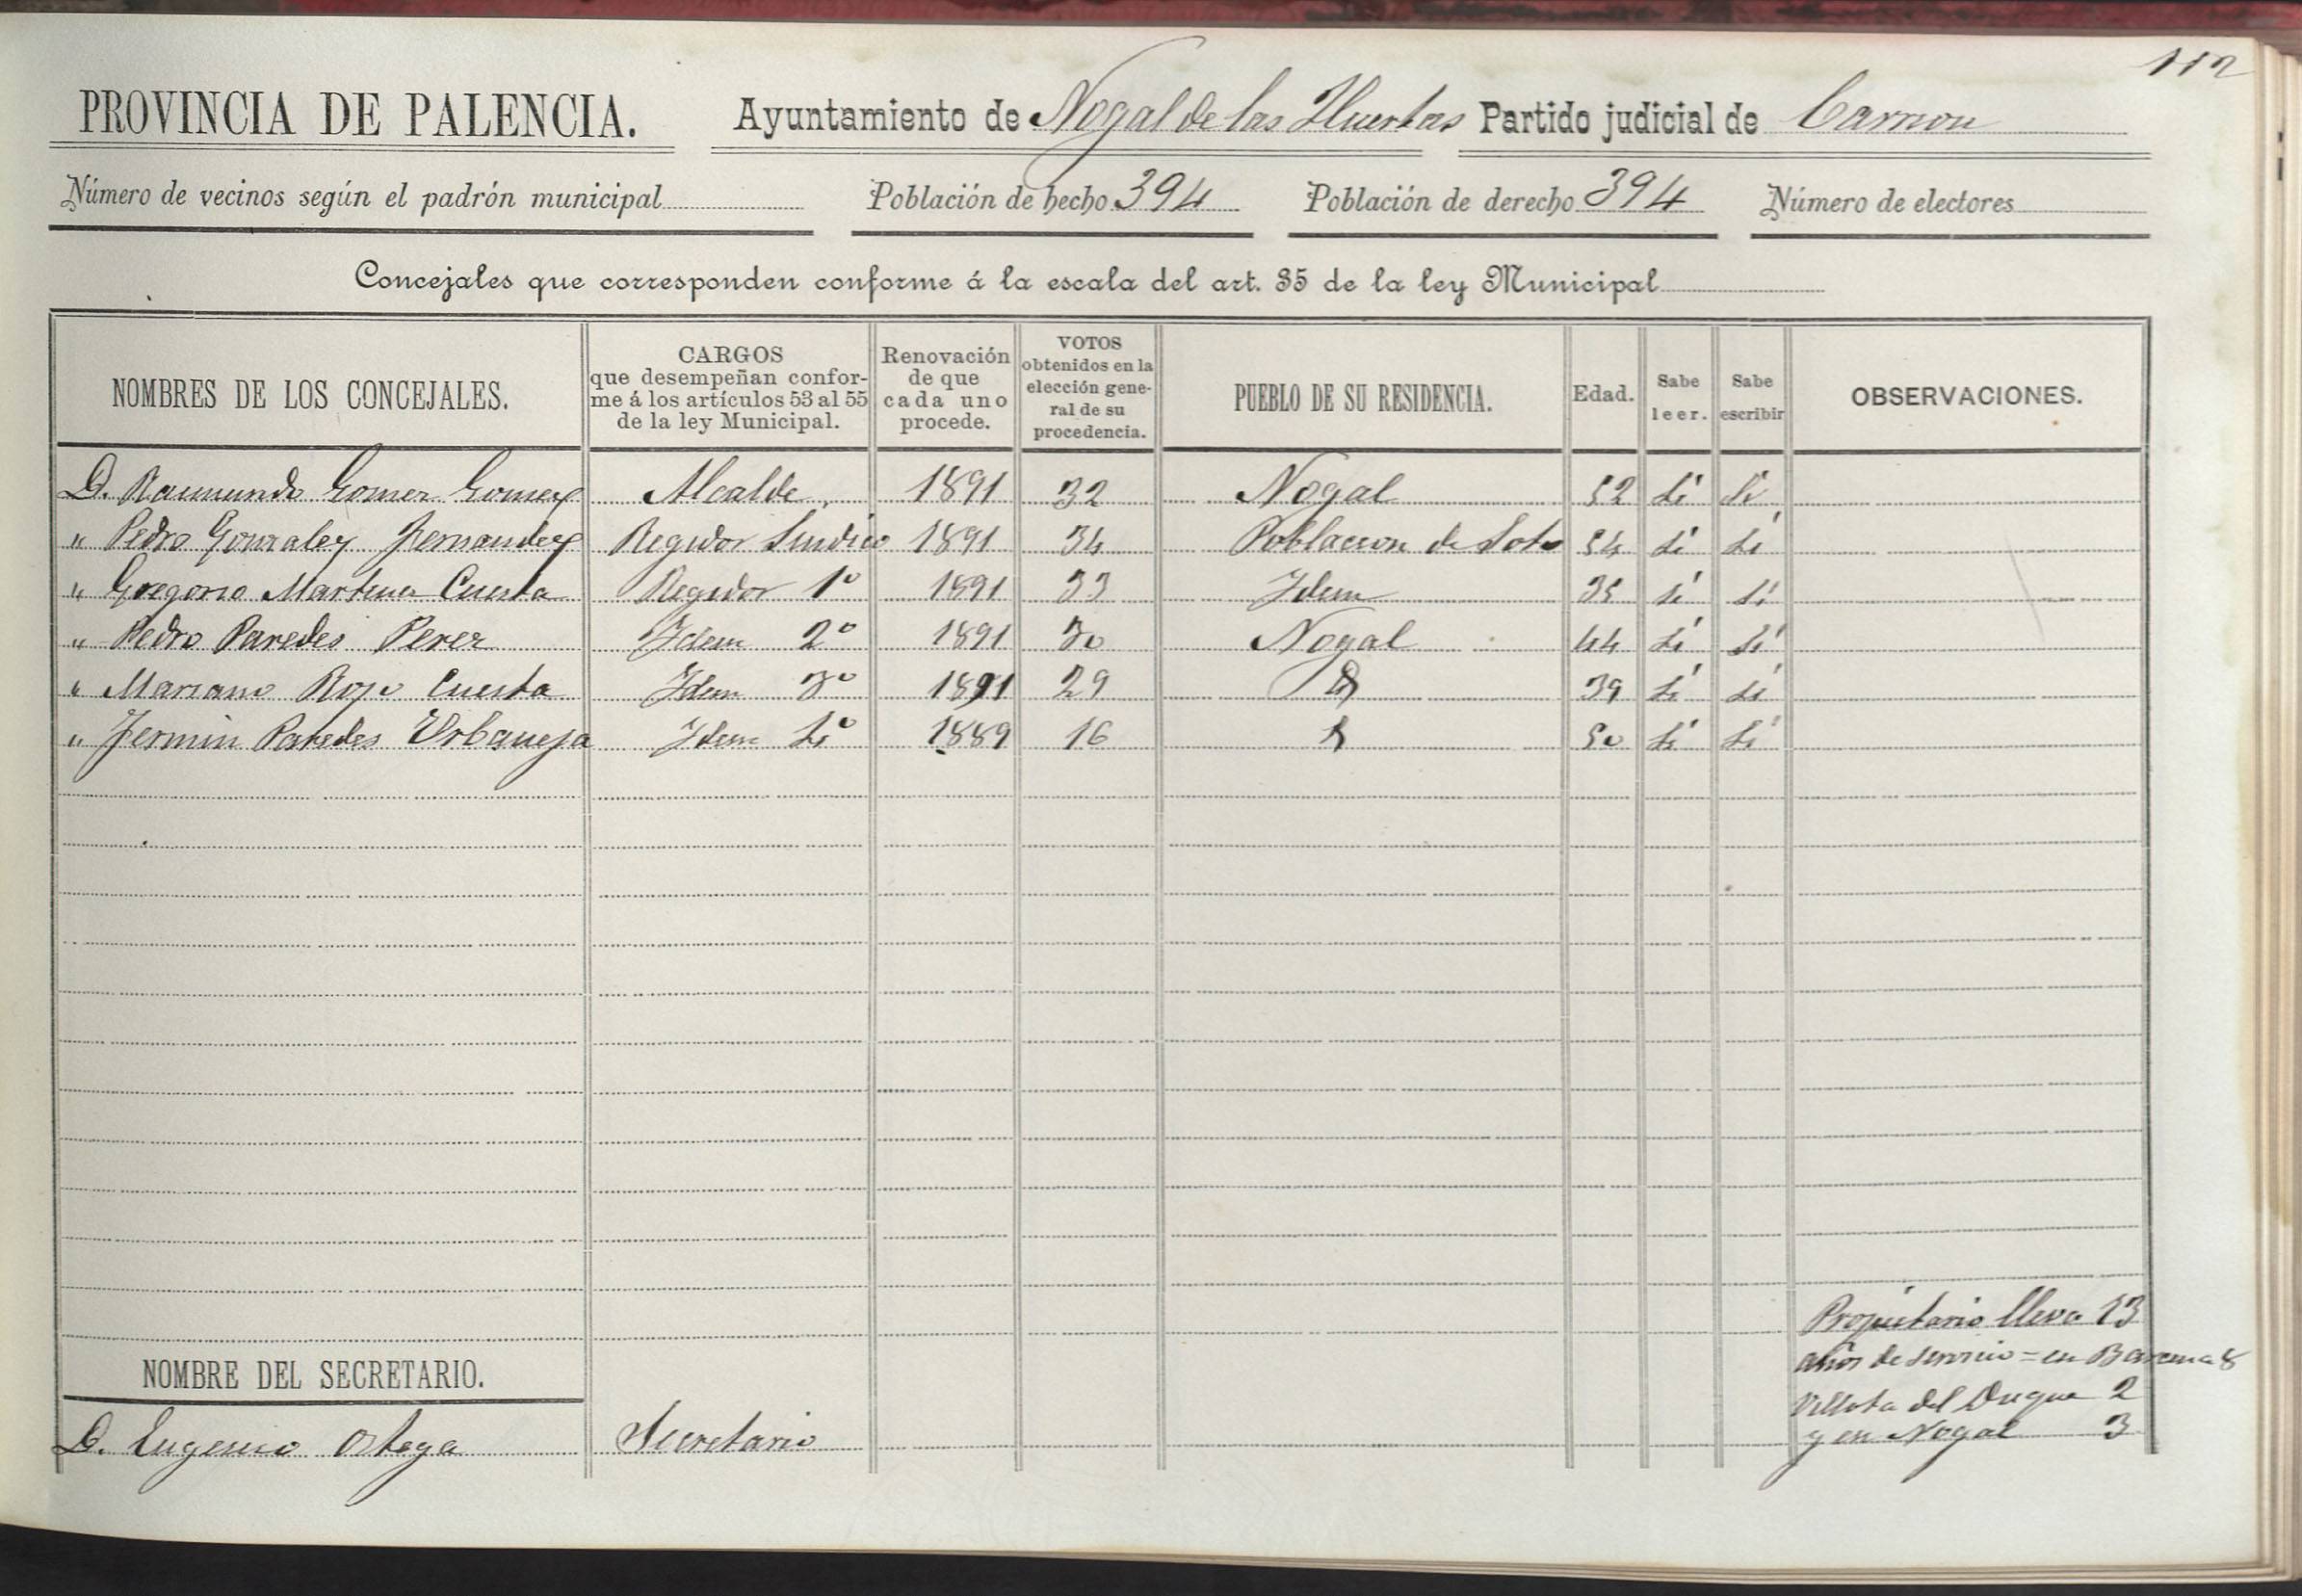 112
PROVINCIA DE PALENCIA. Ayuntamiento de Nogal de las Huertas Partido judicial de Carrion
Número de vecinos según el padrón municipal Población de hecho 394 Población de derecho 394 Número de electores
Concejales que corresponden conforme á la escala del art. 35 de la ley Municipal
NOMBRES DE LOS CONCEJALES.
CARGOS
que desempeñan confor-
me á los artículos 53 al 55
de la ley Municipal.
Renovación
de que
cada uno
procede.
VOTOS
obtenidos en la
elección gene-
ral de su
procedencia.
PUEBLO DE SU RESIDENCIA.
Edad.
Sabe
leer.
Sabe
escribir
OBSERVACIONES.
D. Raimundo Gomez Gomez Alcalde 1891 32 Nogal 52 si si
" Pedro Gonzalez Fernandez Regidor Sindico 1891 34 Poblacion de Soto 54 si si
" Gregorio Martinez Cuesta Regidor 1º 1891 33 Idem 35 si si
" Pedro Paredes Perez Idem 2º 1891 30 Nogal 44 si si
" Mariano Rojo Cuesta Idem 3º 1891 29 39 si si
" Fermin Paredes Urbaneja Idem 4º 1889 16 50 si si
Propietario lleva 13
años de servicio = en 8
Villota del Duque 2
y en Nogal 3
NOMBRE DEL SECRETARIO.
D. Eugenio Ortega Secretario